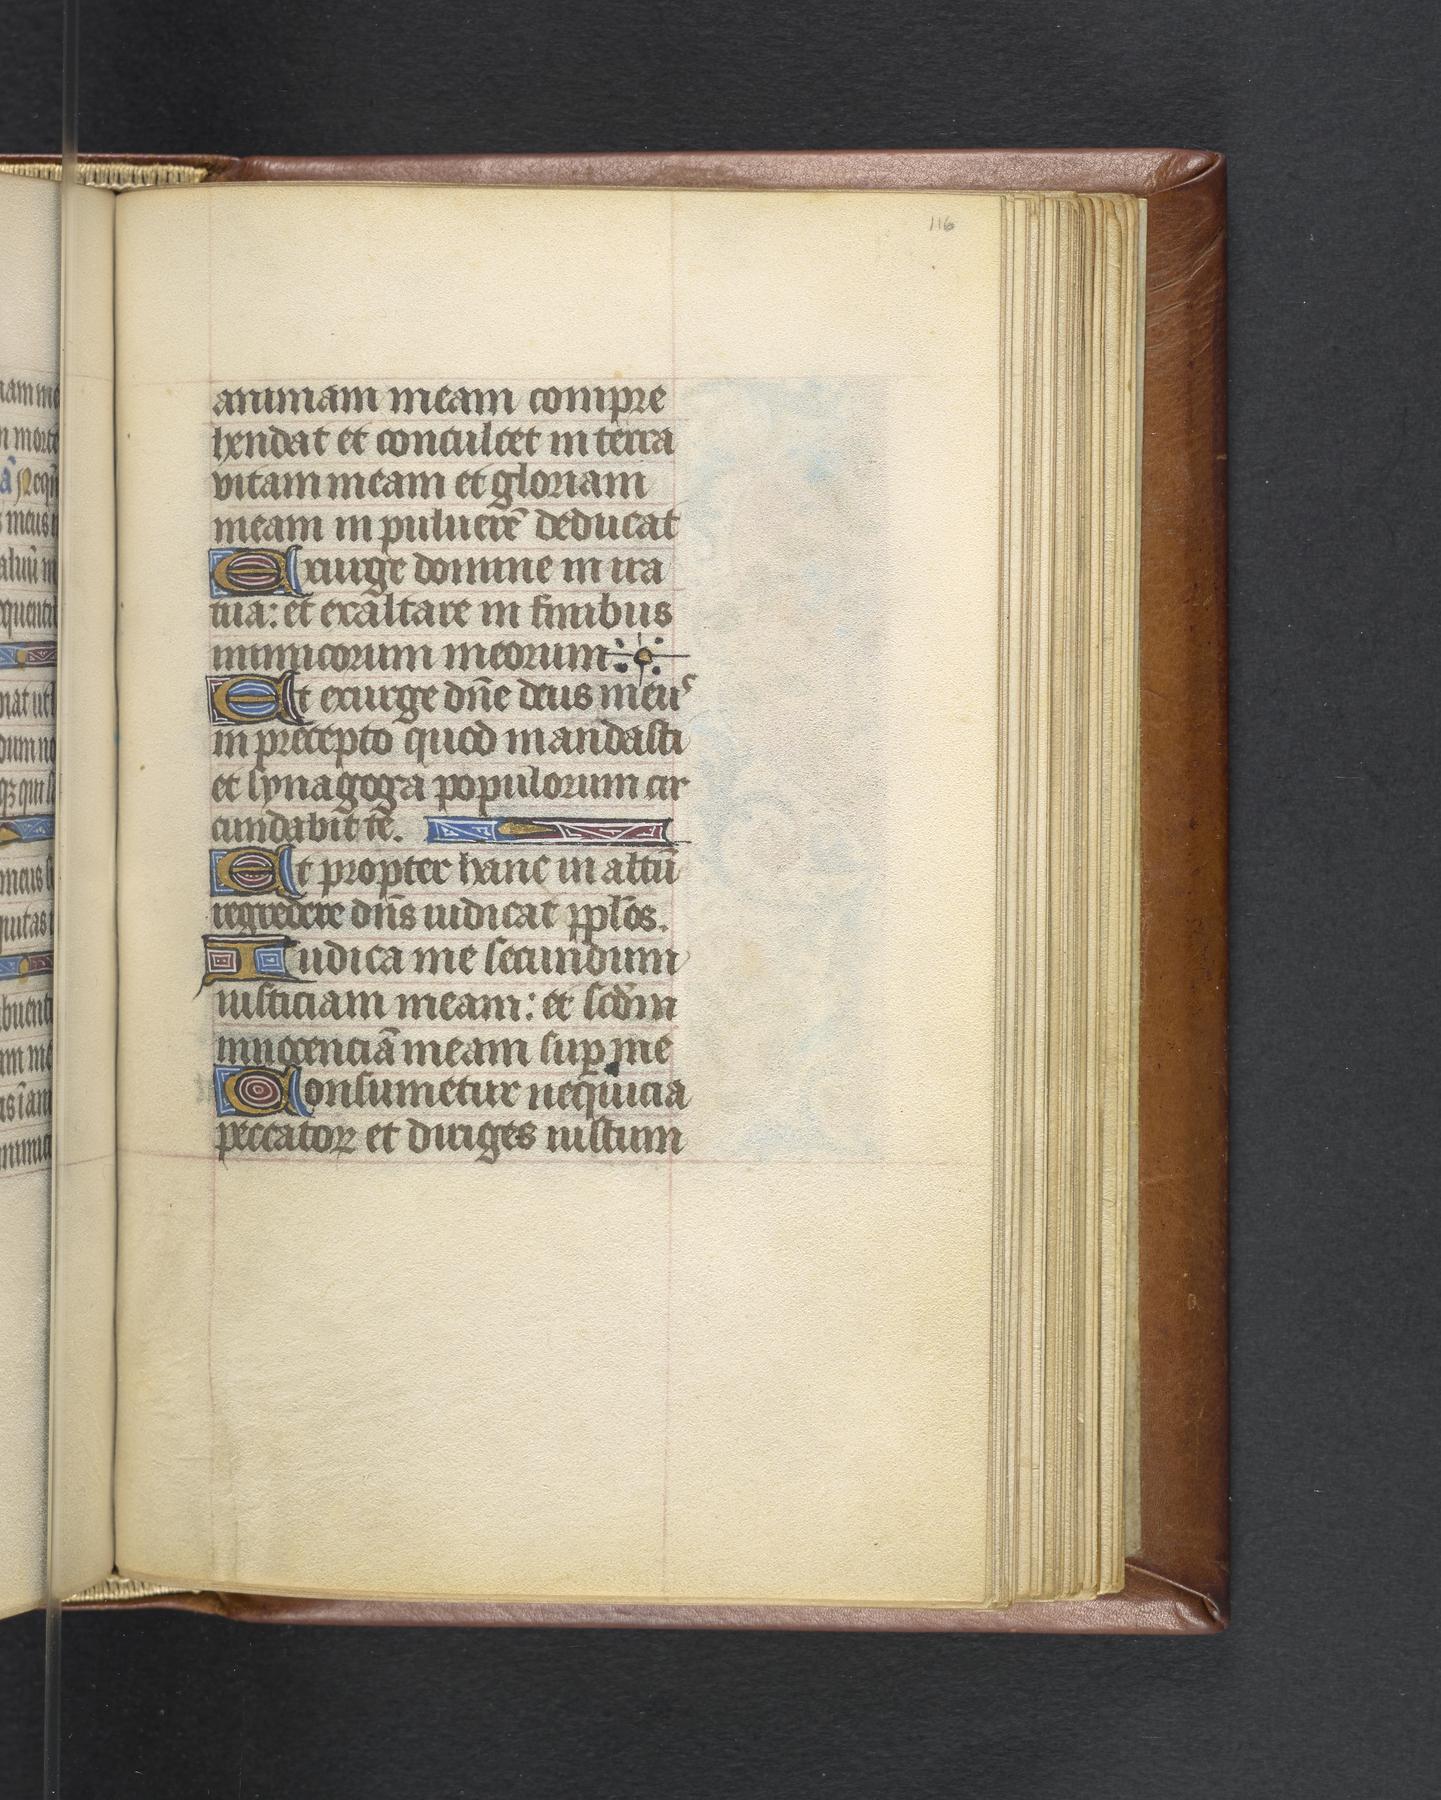 116
animam meam compre
hendat et conculcet in terra
vitam meam et gloriam
meam in puluerē deducat
Exurge domine in ira
tua: et exaltare in finibus
inimicorum meorum
Et exurge dn̄e deus meus
in precepto quod mandasti
et synagoga populorum cir
cundabit te.
Et propter hanc in altū
regredere dn̄s iudicat ppl̄os.
Iudica me secundum
iusticiam meam: et scd̄m
innocenciā meam suꝑ me
Consumetur nequicia
peccatoꝝ et diriges iustum